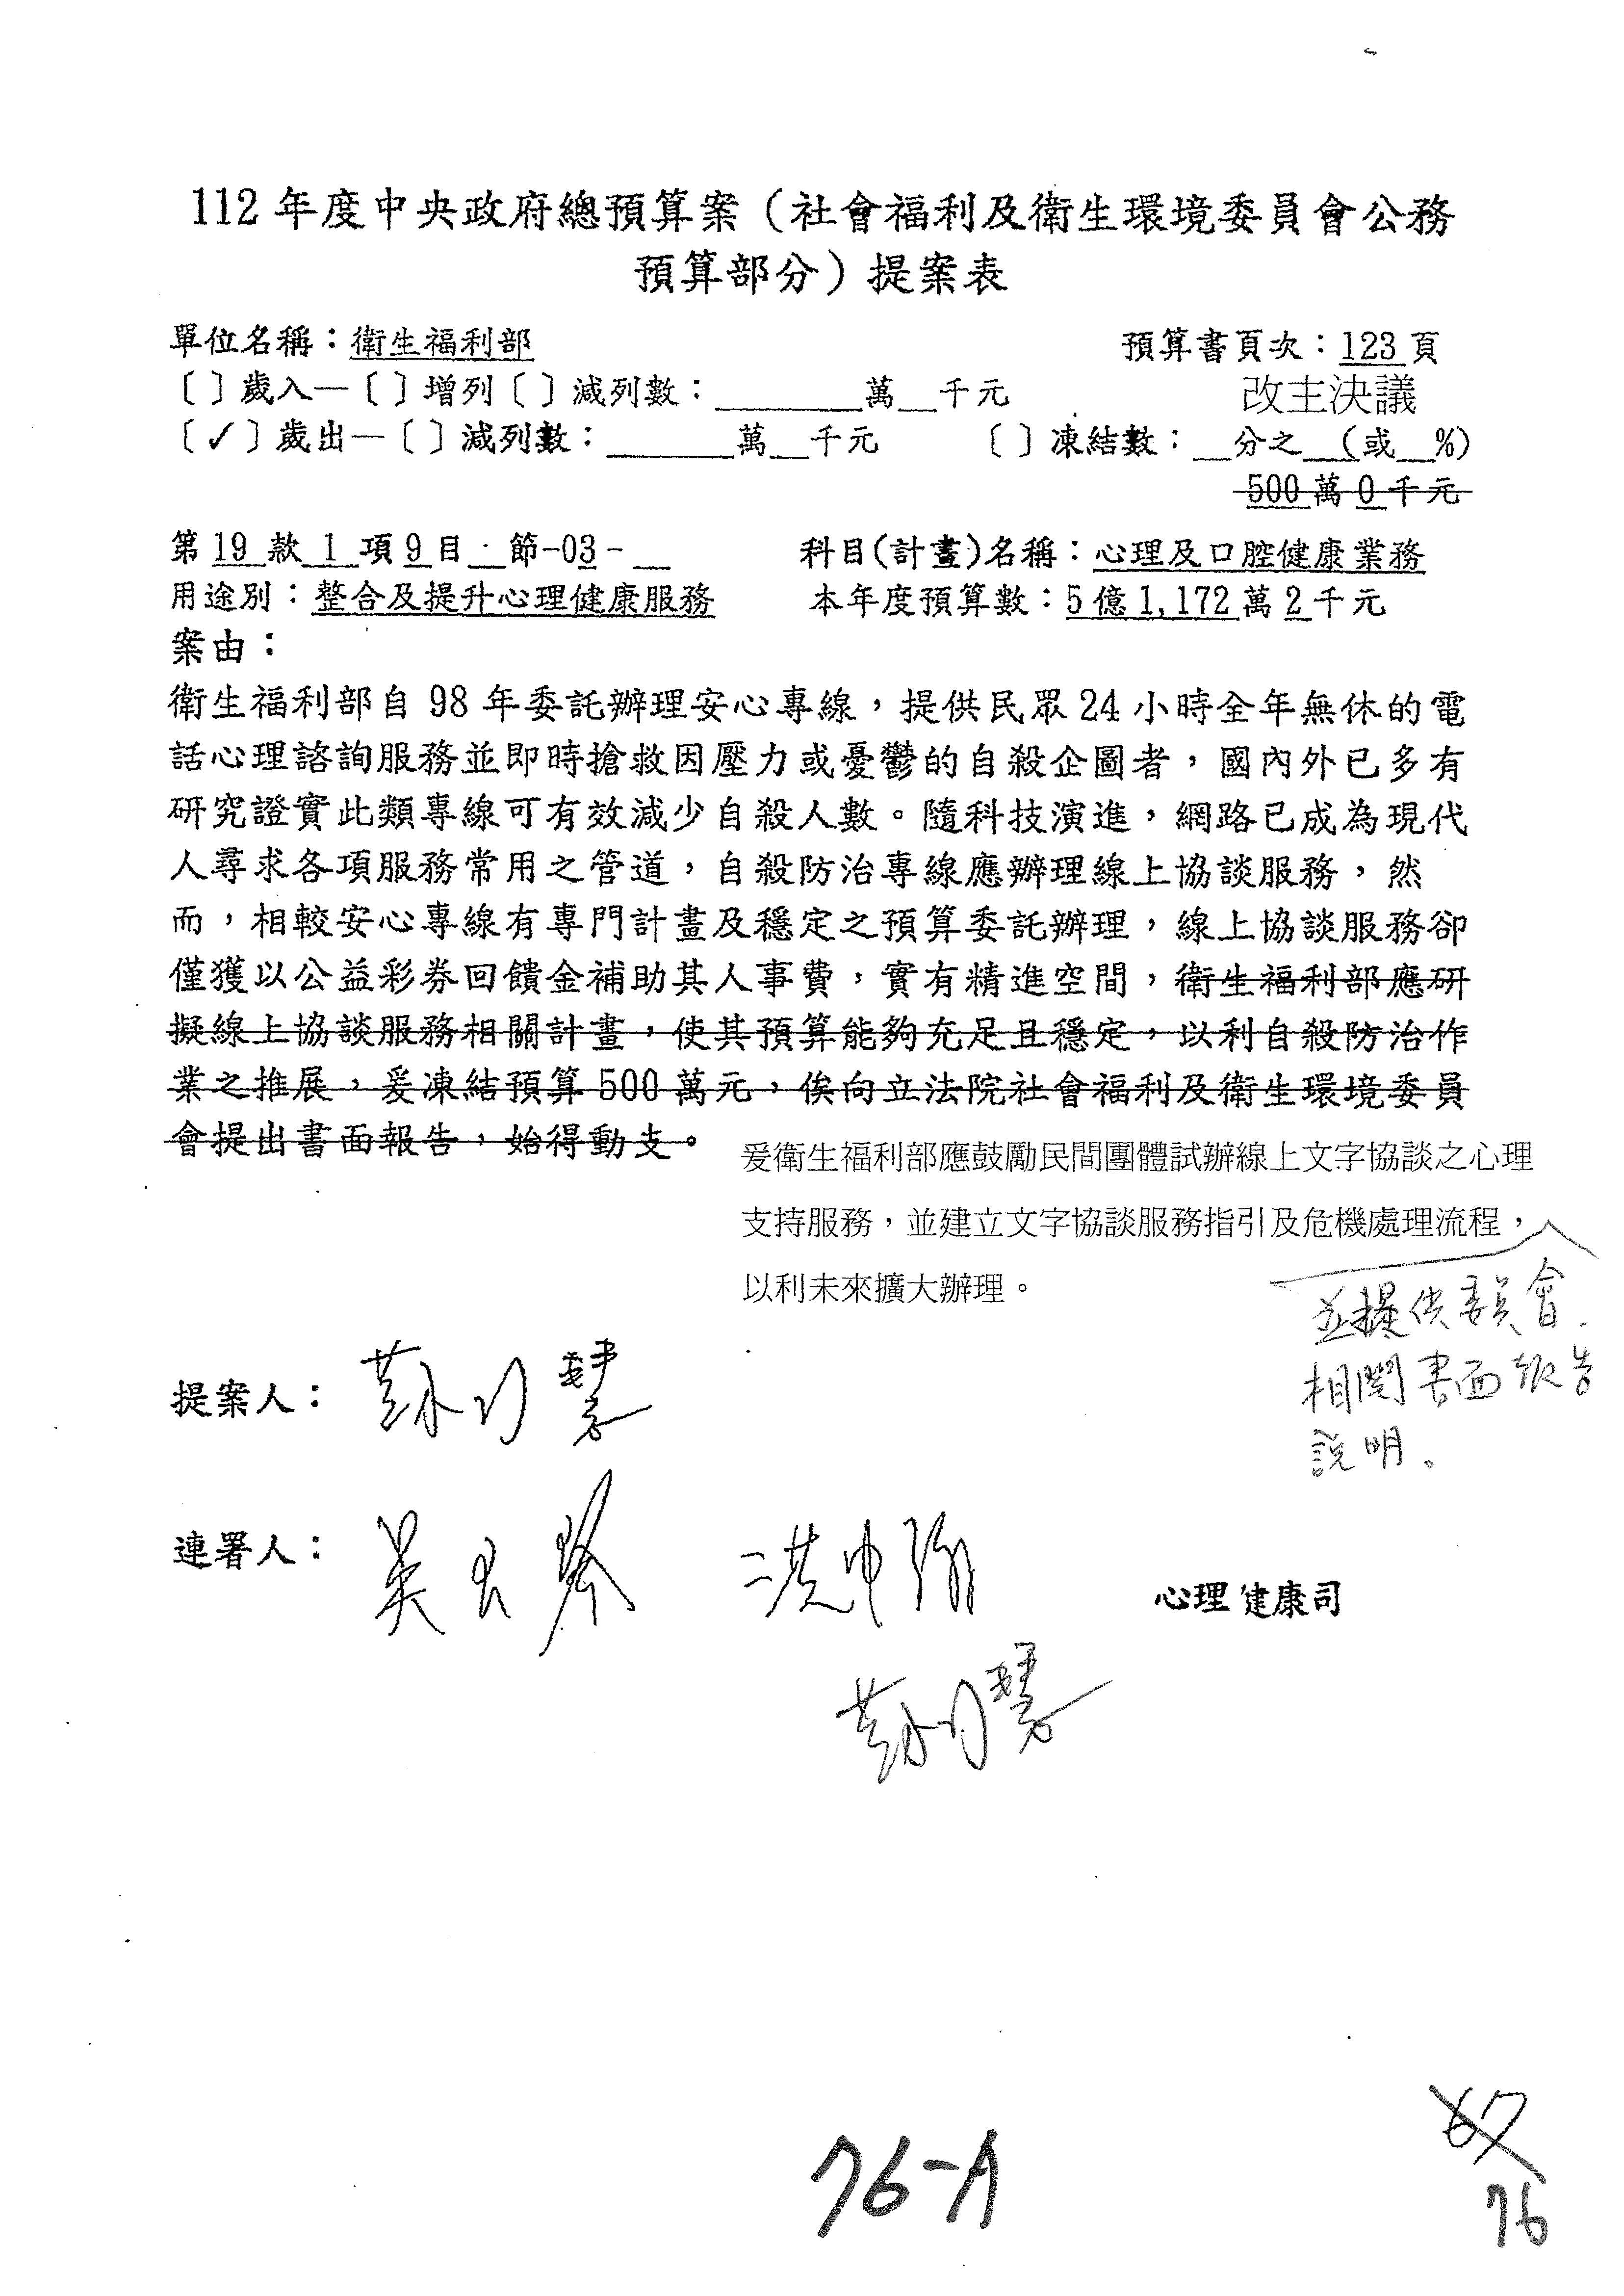 112年度中央政府總預算案（社會福利及衛生環境委員會公務
預算部分）提案表
單位名稱：衛生福利部 預算書頁次：123頁
〔 〕歲入—〔 〕增列〔 〕減列數：＿＿＿萬＿千元 改主決議
〔✓〕歲出—〔 〕減列數：＿＿＿萬＿千元 〔 〕凍結數：＿分之＿(或＿%)
500萬0千元
第19款1項9目＿節-03-＿ 科目(計畫)名稱：心理及口腔健康業務
用途別：整合及提升心理健康服務 本年度預算數：5億1,172萬2千元
案由：
衛生福利部自98年委託辦理安心專線，提供民眾24小時全年無休的電
話心理諮詢服務並即時搶救因壓力或憂鬱的自殺企圖者，國內外已多有
研究證實此類專線可有效減少自殺人數。隨科技演進，網路已成為現代
人尋求各項服務常用之管道，自殺防治專線應辦理線上協談服務，然
而，相較安心專線有專門計畫及穩定之預算委託辦理，線上協談服務卻
僅獲以公益彩券回饋金補助其人事費，實有精進空間，衛生福利部應研
擬線上協談服務相關計畫，使其預算能夠充足且穩定，以利自殺防治作
業之推展，爰凍結預算500萬元，俟向立法院社會福利及衛生環境委員
會提出書面報告，始得動支。
爰衛生福利部應鼓勵民間團體試辦線上文字協談之心理
支持服務，並建立文字協談服務指引及危機處理流程，
以利未來擴大辦理。
並提供委員會
相關書面報告
說明。
提案人：
連署人：吳玉琴 洪申翰
心理健康司
76-A
67
76